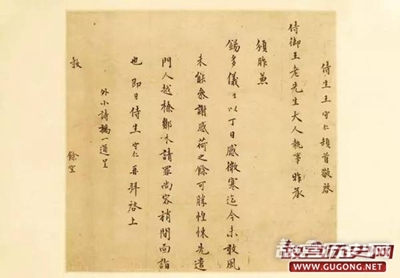 侍生王守仁頓首敬啟
侍御王老先生大人執事昨承
頒胙兼
錫多儀生以丁日感微寒迄今未敢風
未能參謝感荷之餘可勝惶悚先遣
門人越榛鄒木請罪尚容稍間面詣
也即日侍生守仁再拜啟上
外小詩稿一道呈
教
餘空
故宫历史网
www.GUGONG.net